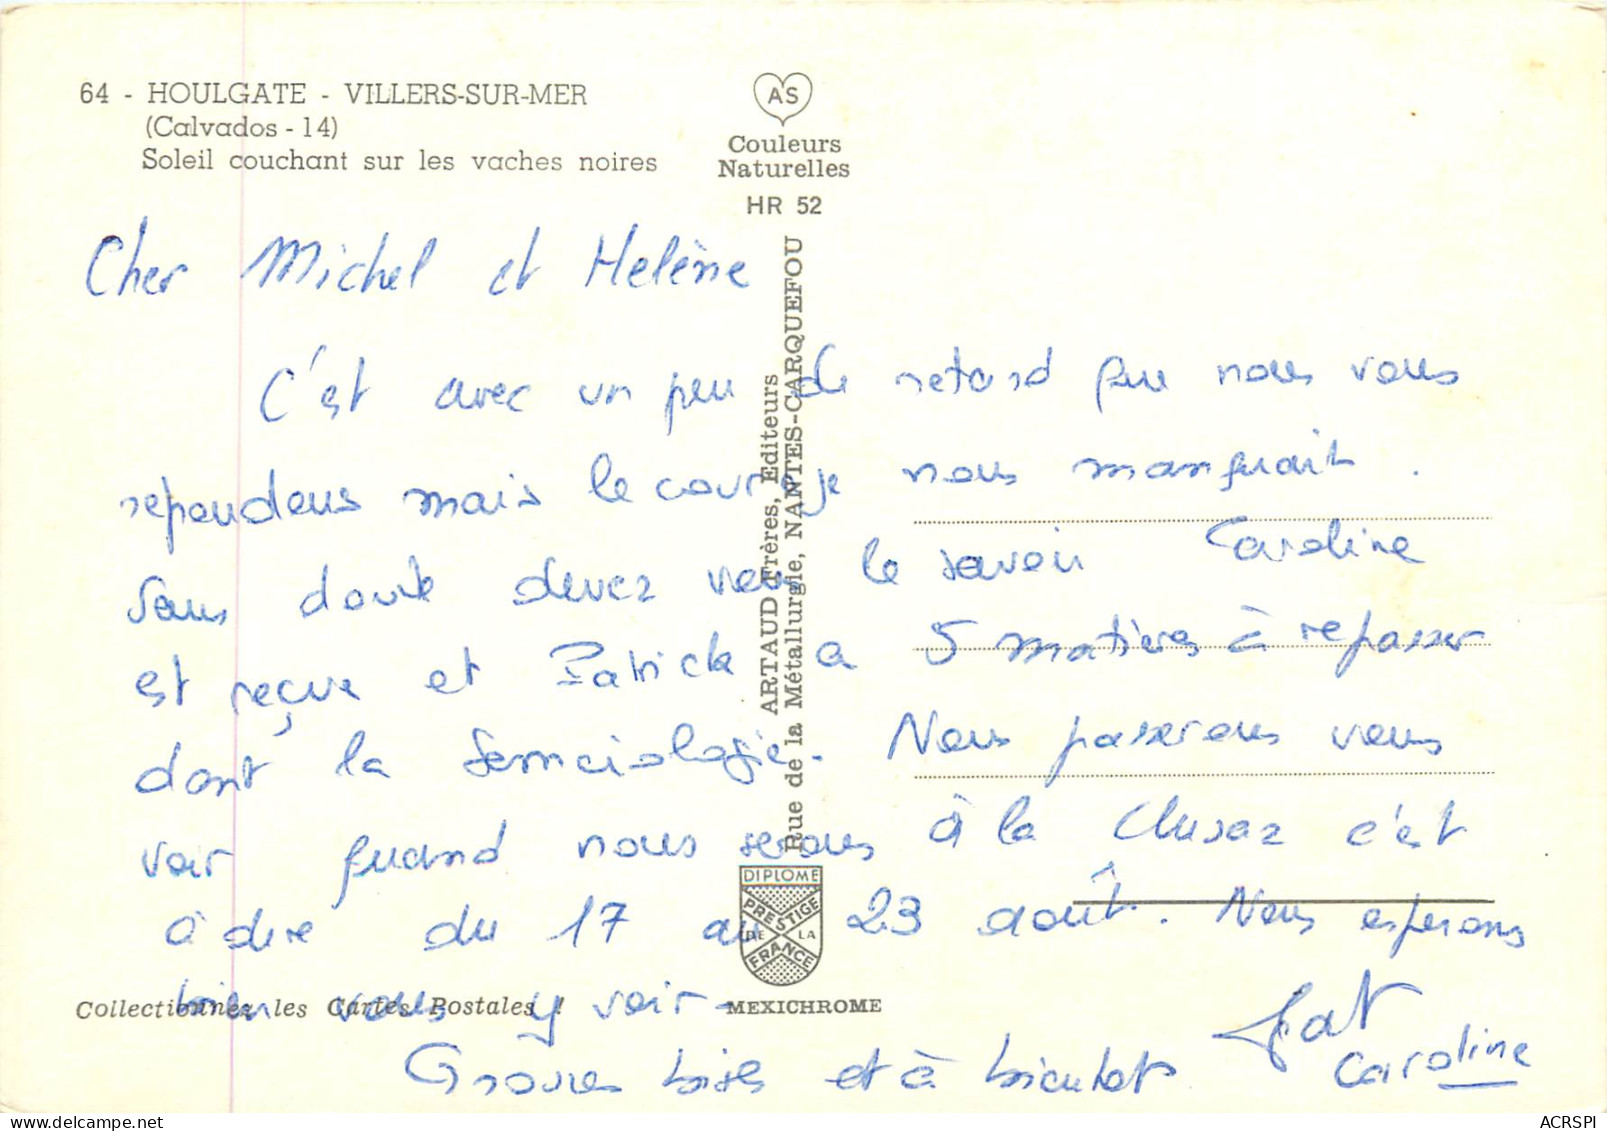 64 - HOULGATE - VILLERS-SUR-MER
(Calvados - 14)
Soleil couchant sur les vaches noires
A'S
Couleurs
Naturelles
HR 52
Cher Michel et Helène
C'est avec un peu de retard que nous vous
repondons mais le courage nous manquait.
Sans doute devez vous le savoir Caroline
est reçue et Patrick a 5 matières à repasser
dont la Semiologie. Nous passerons vous
voir quand nous serons à la Clusaz c'est
à dire du 17 au 23 août. Nous esperons
bien vous y voir -
Grosses bises et à bientot
Pat
Caroline
ARTAUD Frères, Editeurs
Rue de la Métallurgie, NANTES-CARQUEFOU
DIPLOME
PRESTIGE
DE LA
FRANCE
Collectionnez les Cartes Postales !
MEXICHROME
ACRSPI